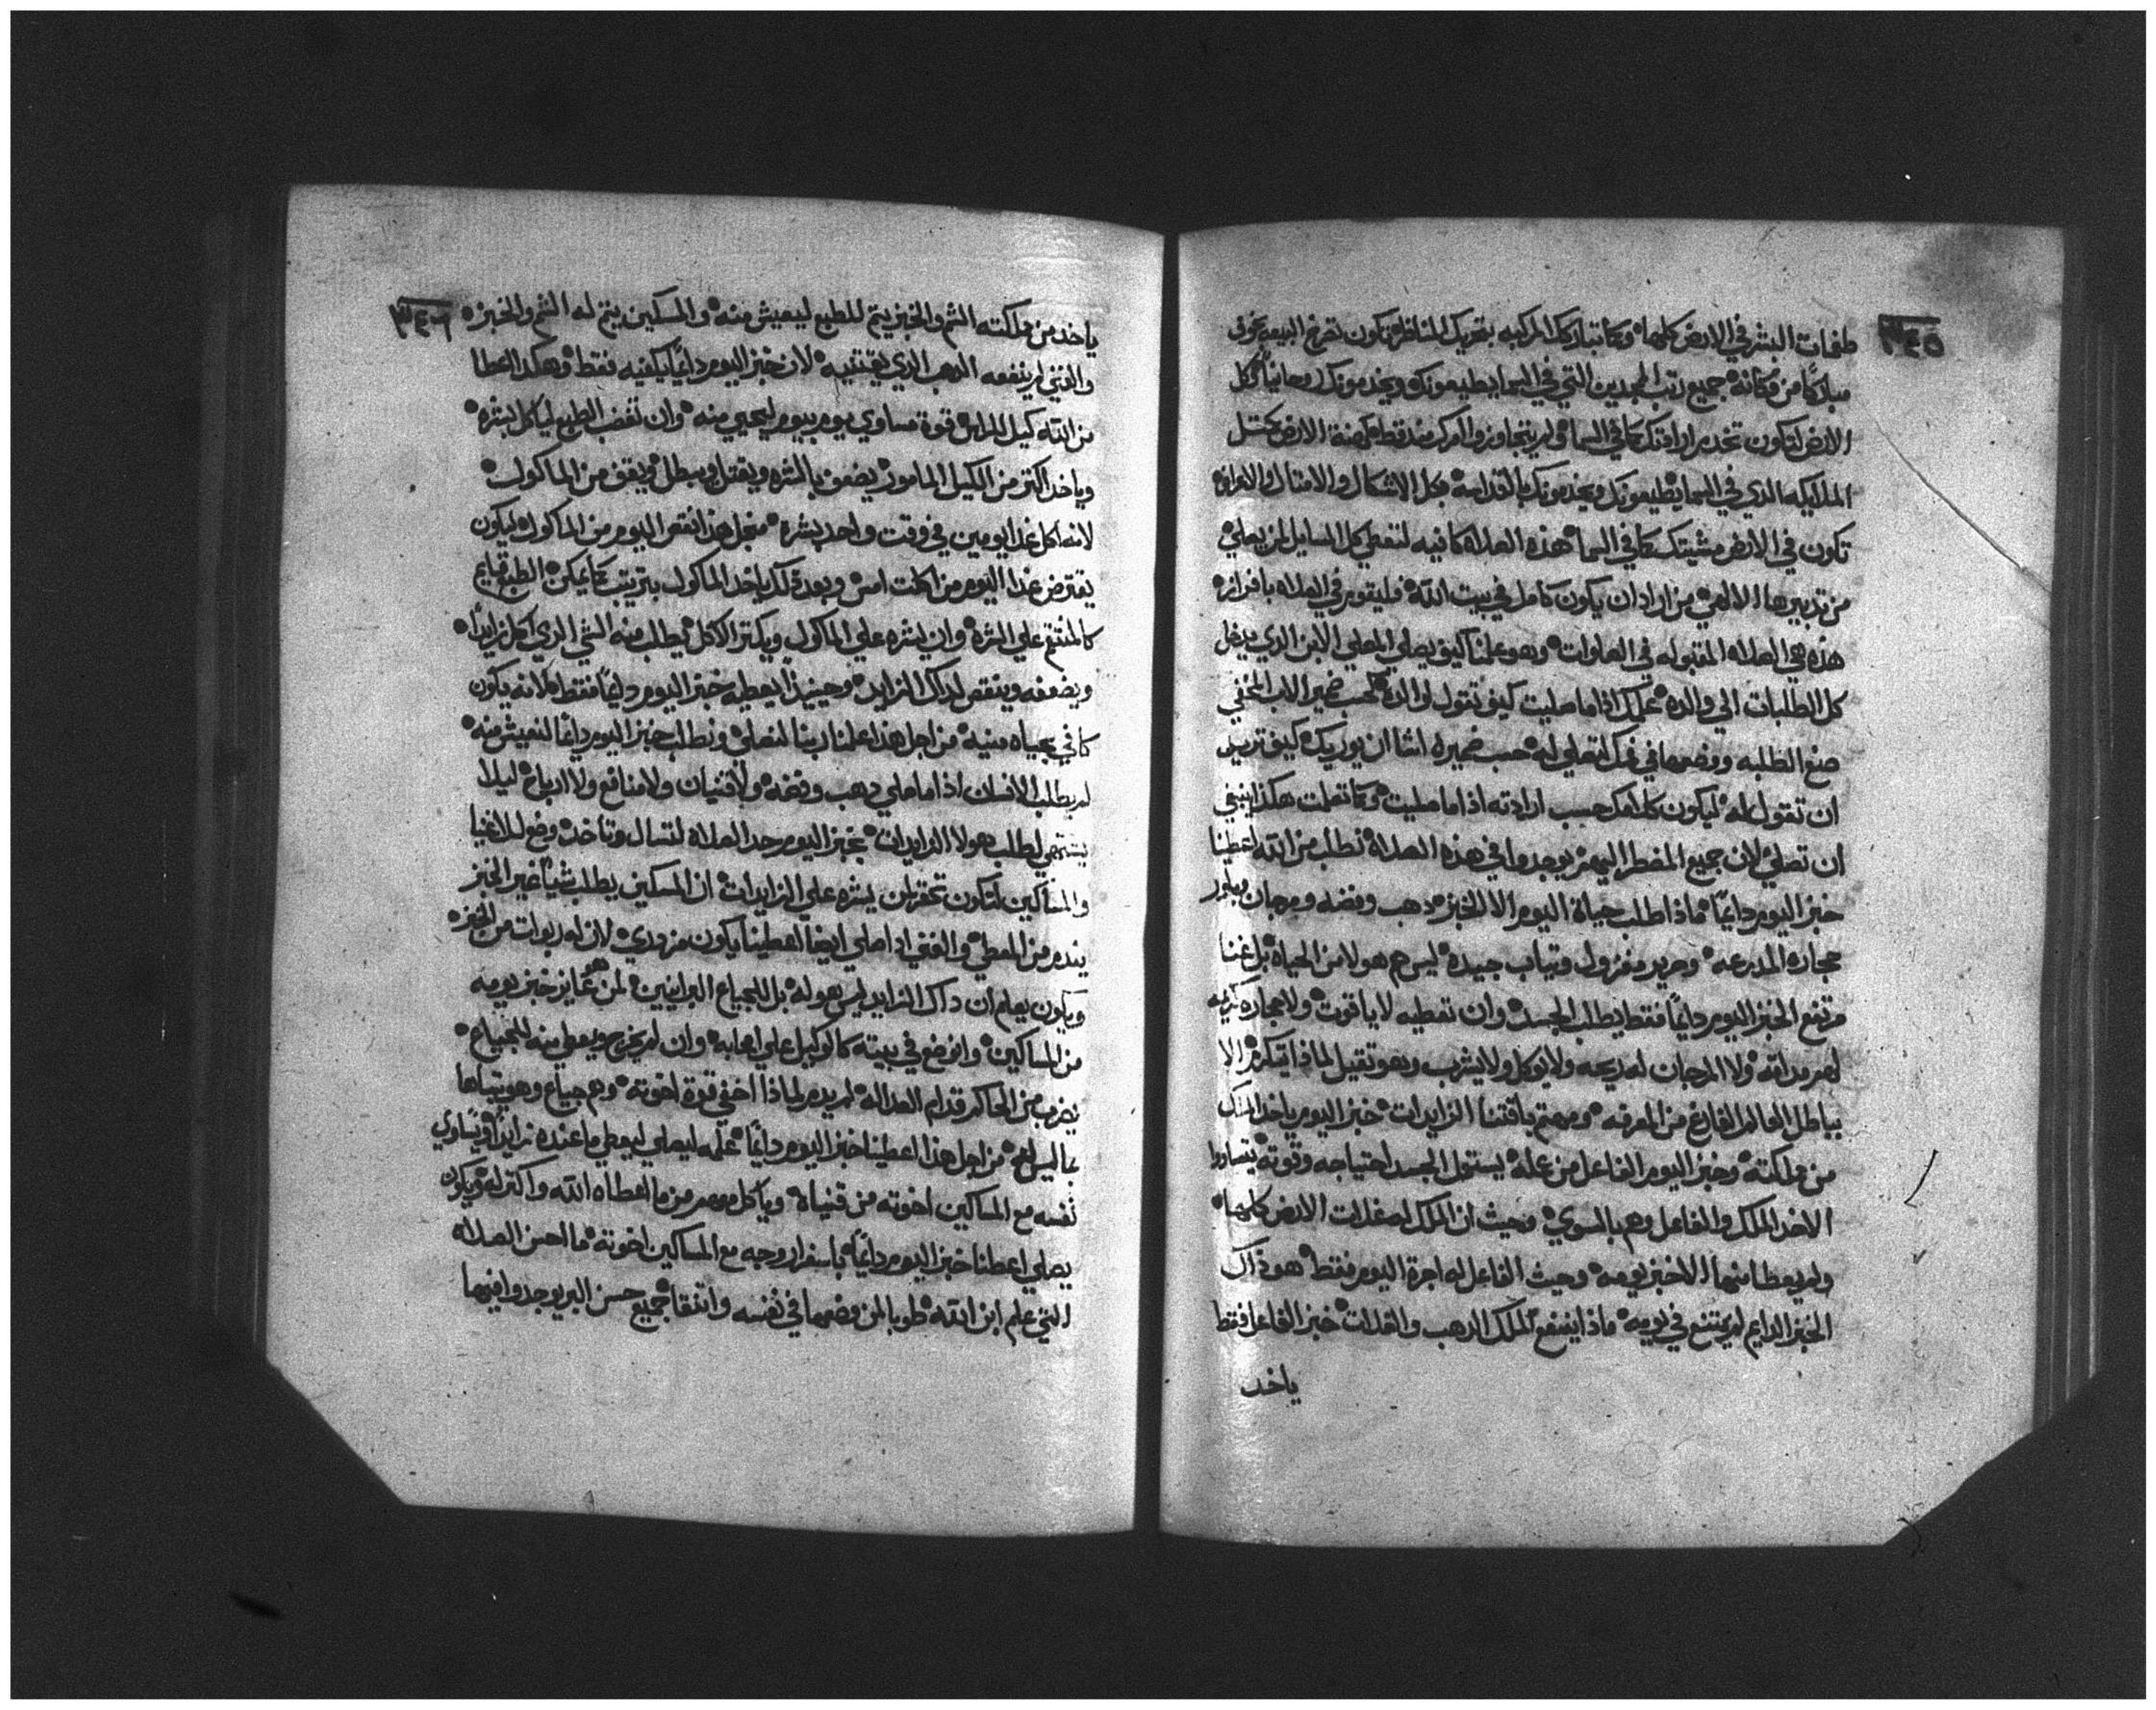 ٣٤٥
طغمات البشر في الارض كلها وكما تباركك المركبه بتحريك المناظر تكون تصرخ البيعه بخوف
مباركا من مكانه جميع رتب المجدين التي في السما يطيعونك ويخدمونك روحانيا كل
الارض لتكون تخدم ارادتك كما في السما ولم يتجاوزوا امرك عندقط كهنة الارض بمثل
الملايكه الذي في السما يطيعونك ويخدمونك بالقداسه بكل الاشكال والامتال والاعراف
تكون في الارض مشيتك كما في السما هذه الصلاة كافيه لتعطي كل المسايل لمن يصلي
من تدبيرها الالهي من اراد ان يكون كامل في بيت الله فليقوم في الصلاه بافراز
هذه هي الصلاه المقبوله في الصلوات وهو علمنا كيف يصلي المصلي الابن الذي يدخل
كل الطلبات الي والده علمك اذا ما صليت كيف تقول لوالده بحسب ضمير الاب المخفي
صنع الطلبه ووضعها في فمك لتصلي له حسب ضميره لشا ان يوريك كيف تريد
ان تقول له ليكون كلامك حسب ارادته اذا ما صليت وكما تعلمت هكذا ينبغي
ان تصلي لان جميع المضطر اليهم يوجدوا في هذه الصلاة نطلب من الله اعطينا
خبز اليوم دايما ماذا طلب حياة اليوم الا الخبز دهب وفضه ومرجان وبلور
حجاره المدرعه وحرير مغزول وتياب جيده ليس هم هولا من الحياه بل غنا
مرتفع الخبز اليوم دايما فقط يطلب الجسد وان تعطيه لا ياقوت ولا حجاره كريمه
لهم مداقه ولا المرجان له ريحه ولا يوكل ولا يشرب وهو تقيل لماذا يتكرم الا
بباطل العالم الفارغ من المعرفه ومهتم باقتنا الزايدات خبز اليوم ياخد الملك
من مملكته وخبز اليوم الفاعل من عمله يستول الجسد احتياجه وقوته يتساووا
الاخد الملك والفاعل وهم بالسوي وحيث ان الملك له غلات الارض كلها
ولم يعطا منها الا خبز يومه وحيث الفاعل له اجرة اليوم فقط هو ذاك
الخبز الدايم لم يمتنع في يومه ماذا ينفع الملك الدهب والغلات خبز الفاعل فقط
ياخد
٣٤٦
ياخد من مملكته الشم والخبز يتم للطبع ليعيش منه والمسكين يتم له الشم والخبز
والغني لم ينفعه الدهب الذي يقتنيه لان خبز اليوم دايما يكفيه فقط وهكذا العطا
من الله كيل للمراس قوة مساوي يوم بيوم ليحيي منه وان تغصب الطبع لياكل بشره
وياخد اكتر من الكيل المامور يضعف بالشره ويقتل ويبطل ويقف من الماكول
لانه اكل غدا يومين في وقت واحد بشره منجل هذا نقص اليوم من الماكول ليكون
يقترض غدا اليوم من اكلت امس وبعد ذلك ياخد الماكول بترتيب كما يمكن الطبع قايم
كالمنتقم علي الشره وان يشره علي الماكول ويكتر الاكل يطلب منه الشي الذي اكل زايدا
ويضعفه وينقص لداك الزايد وحينيذ يعطيه خبز اليوم دايما فقط لانه يكون
كافي بحياه منيه من اجل هذا علمنا ربنا لنصلي ونطلب خبز اليوم دايما لنعيش منه
لم يطلب الانسان اذا ما صلي دهب وفضه ولا قنيان ولا منافع ولا ارباح ليلا
يشتهي لطلب هولا الزايدات بخبز اليوم حد الصلاه لتسال وتاخد وضع للاغنيا
والمساكين لتكون تحقر لمن يشره علي الزايدات ان المسكين يطلب شيا غير الخبز
يندم من المعطي والغني اذا صلي ايضا اعطينا يكون مزدري لان له ربوات من الخبز
ويكون يعلم ان داك الزايد ليس هو له بل للجياع البرانيين لمن هو عايز خبز يومه
من المساكين واتوضع في بيته كالوكيل علي اصحابه وان لم يخرج ويعطي منه للجياع
يضرب من الحاكم قدام العداله لم يدم لماذا اخفي قوة اخوته وهم جياع وهو يتباها
بما ليس له من اجل هذا اعطينا خبز اليوم دايما علمه ليصلي ليعطي ما عنده زايدا ويساوي
نفسه مع المساكين اخوته من قنياه وياكل معهم من ما اعطاه الله واكتر له ويكون
يصلي اعطنا خبز اليوم دايما باسفرار وجه مع المساكين اخوته ما احسن الصلاه
التي علم ابن الله طوبا لمن وضعها في نفسه واتنقا جميع حسن البر يوجدوا فيها